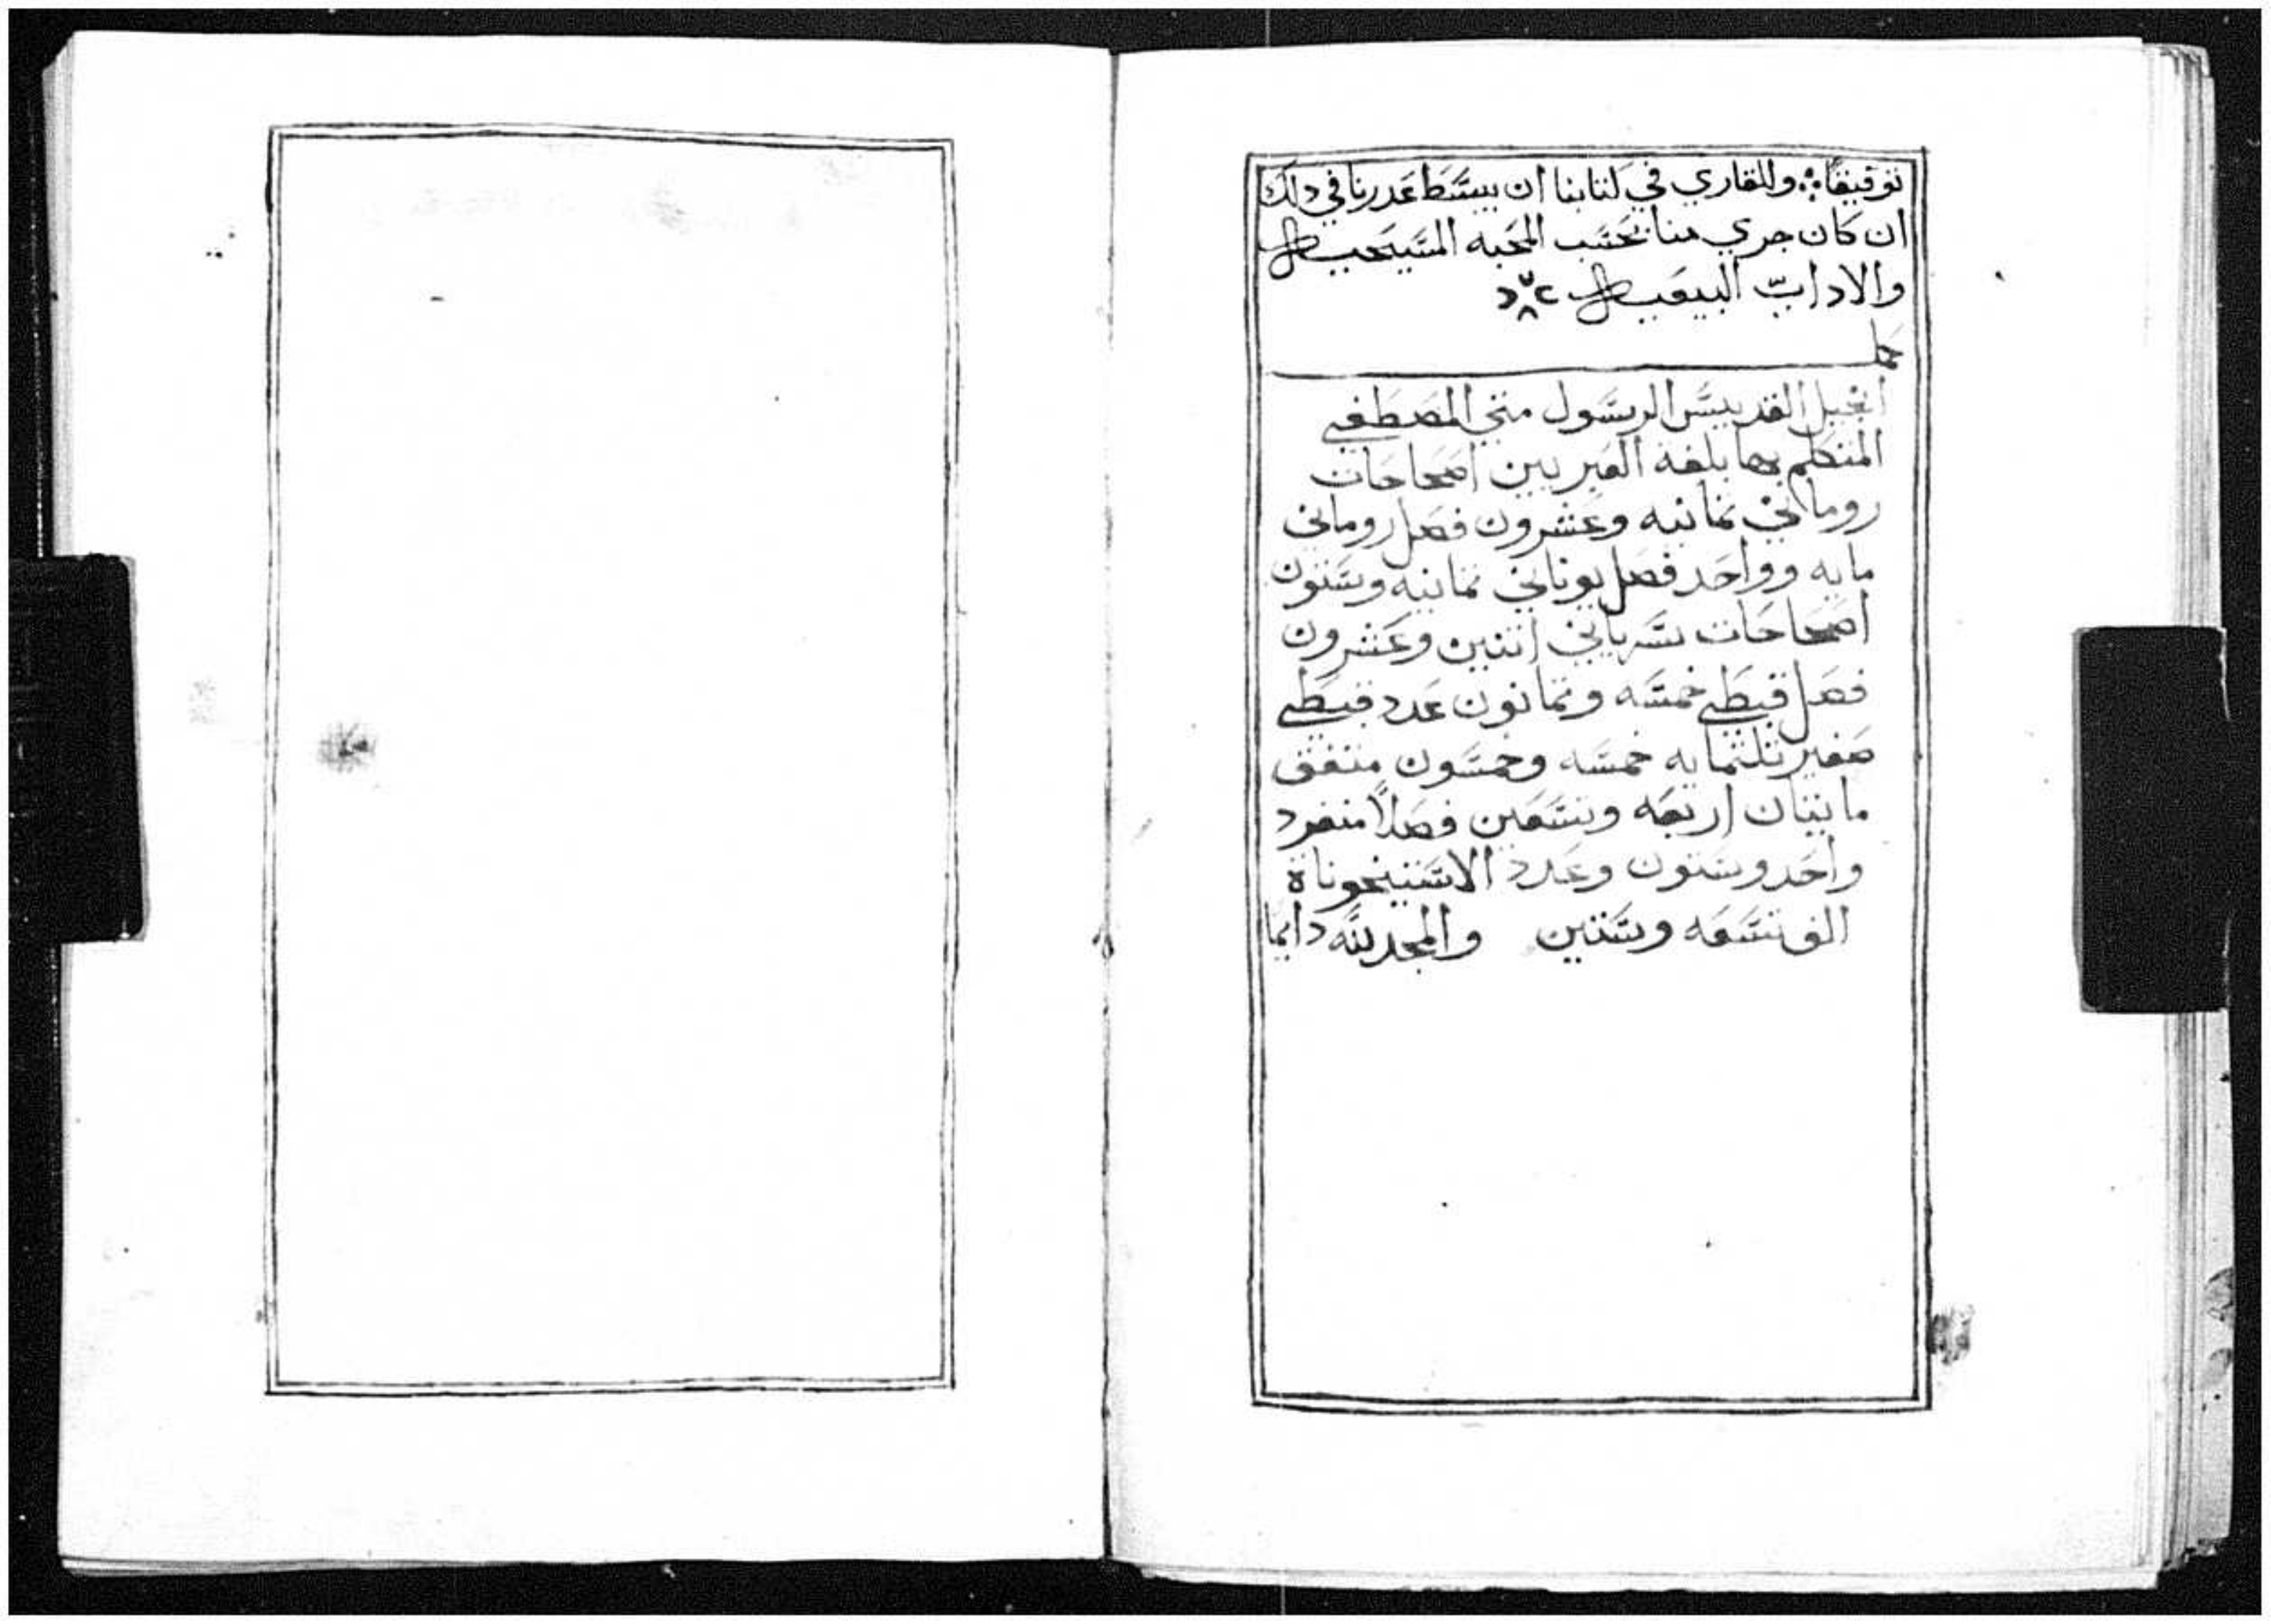 توفيقاً ؞ وللقاري في كتابنا ان يبسط عدرنا في دلك
ان كان جري منا بحسب المحبه المسيحيه
والاداب البيعيه
انجيل القديس الرسول متي المصطفي
المتكلم بها بلغة العبريين اصحاحات
روماني تمانيه وعشرون فصل روماني
مايه وواحد فصل يوناني تمانيه وستون
اصحاحات سرياني اتنين وعشرون
فصل قبطي خمسه وتمانون عدد قبطي
صغير تلتمايه خمسه وخمسون متفق
مايتان اربعه وتسعين فصلاً منفرد
واحد وستون وعدد الاستيخوناة
الف تسعه وستين والمجد لله دايما